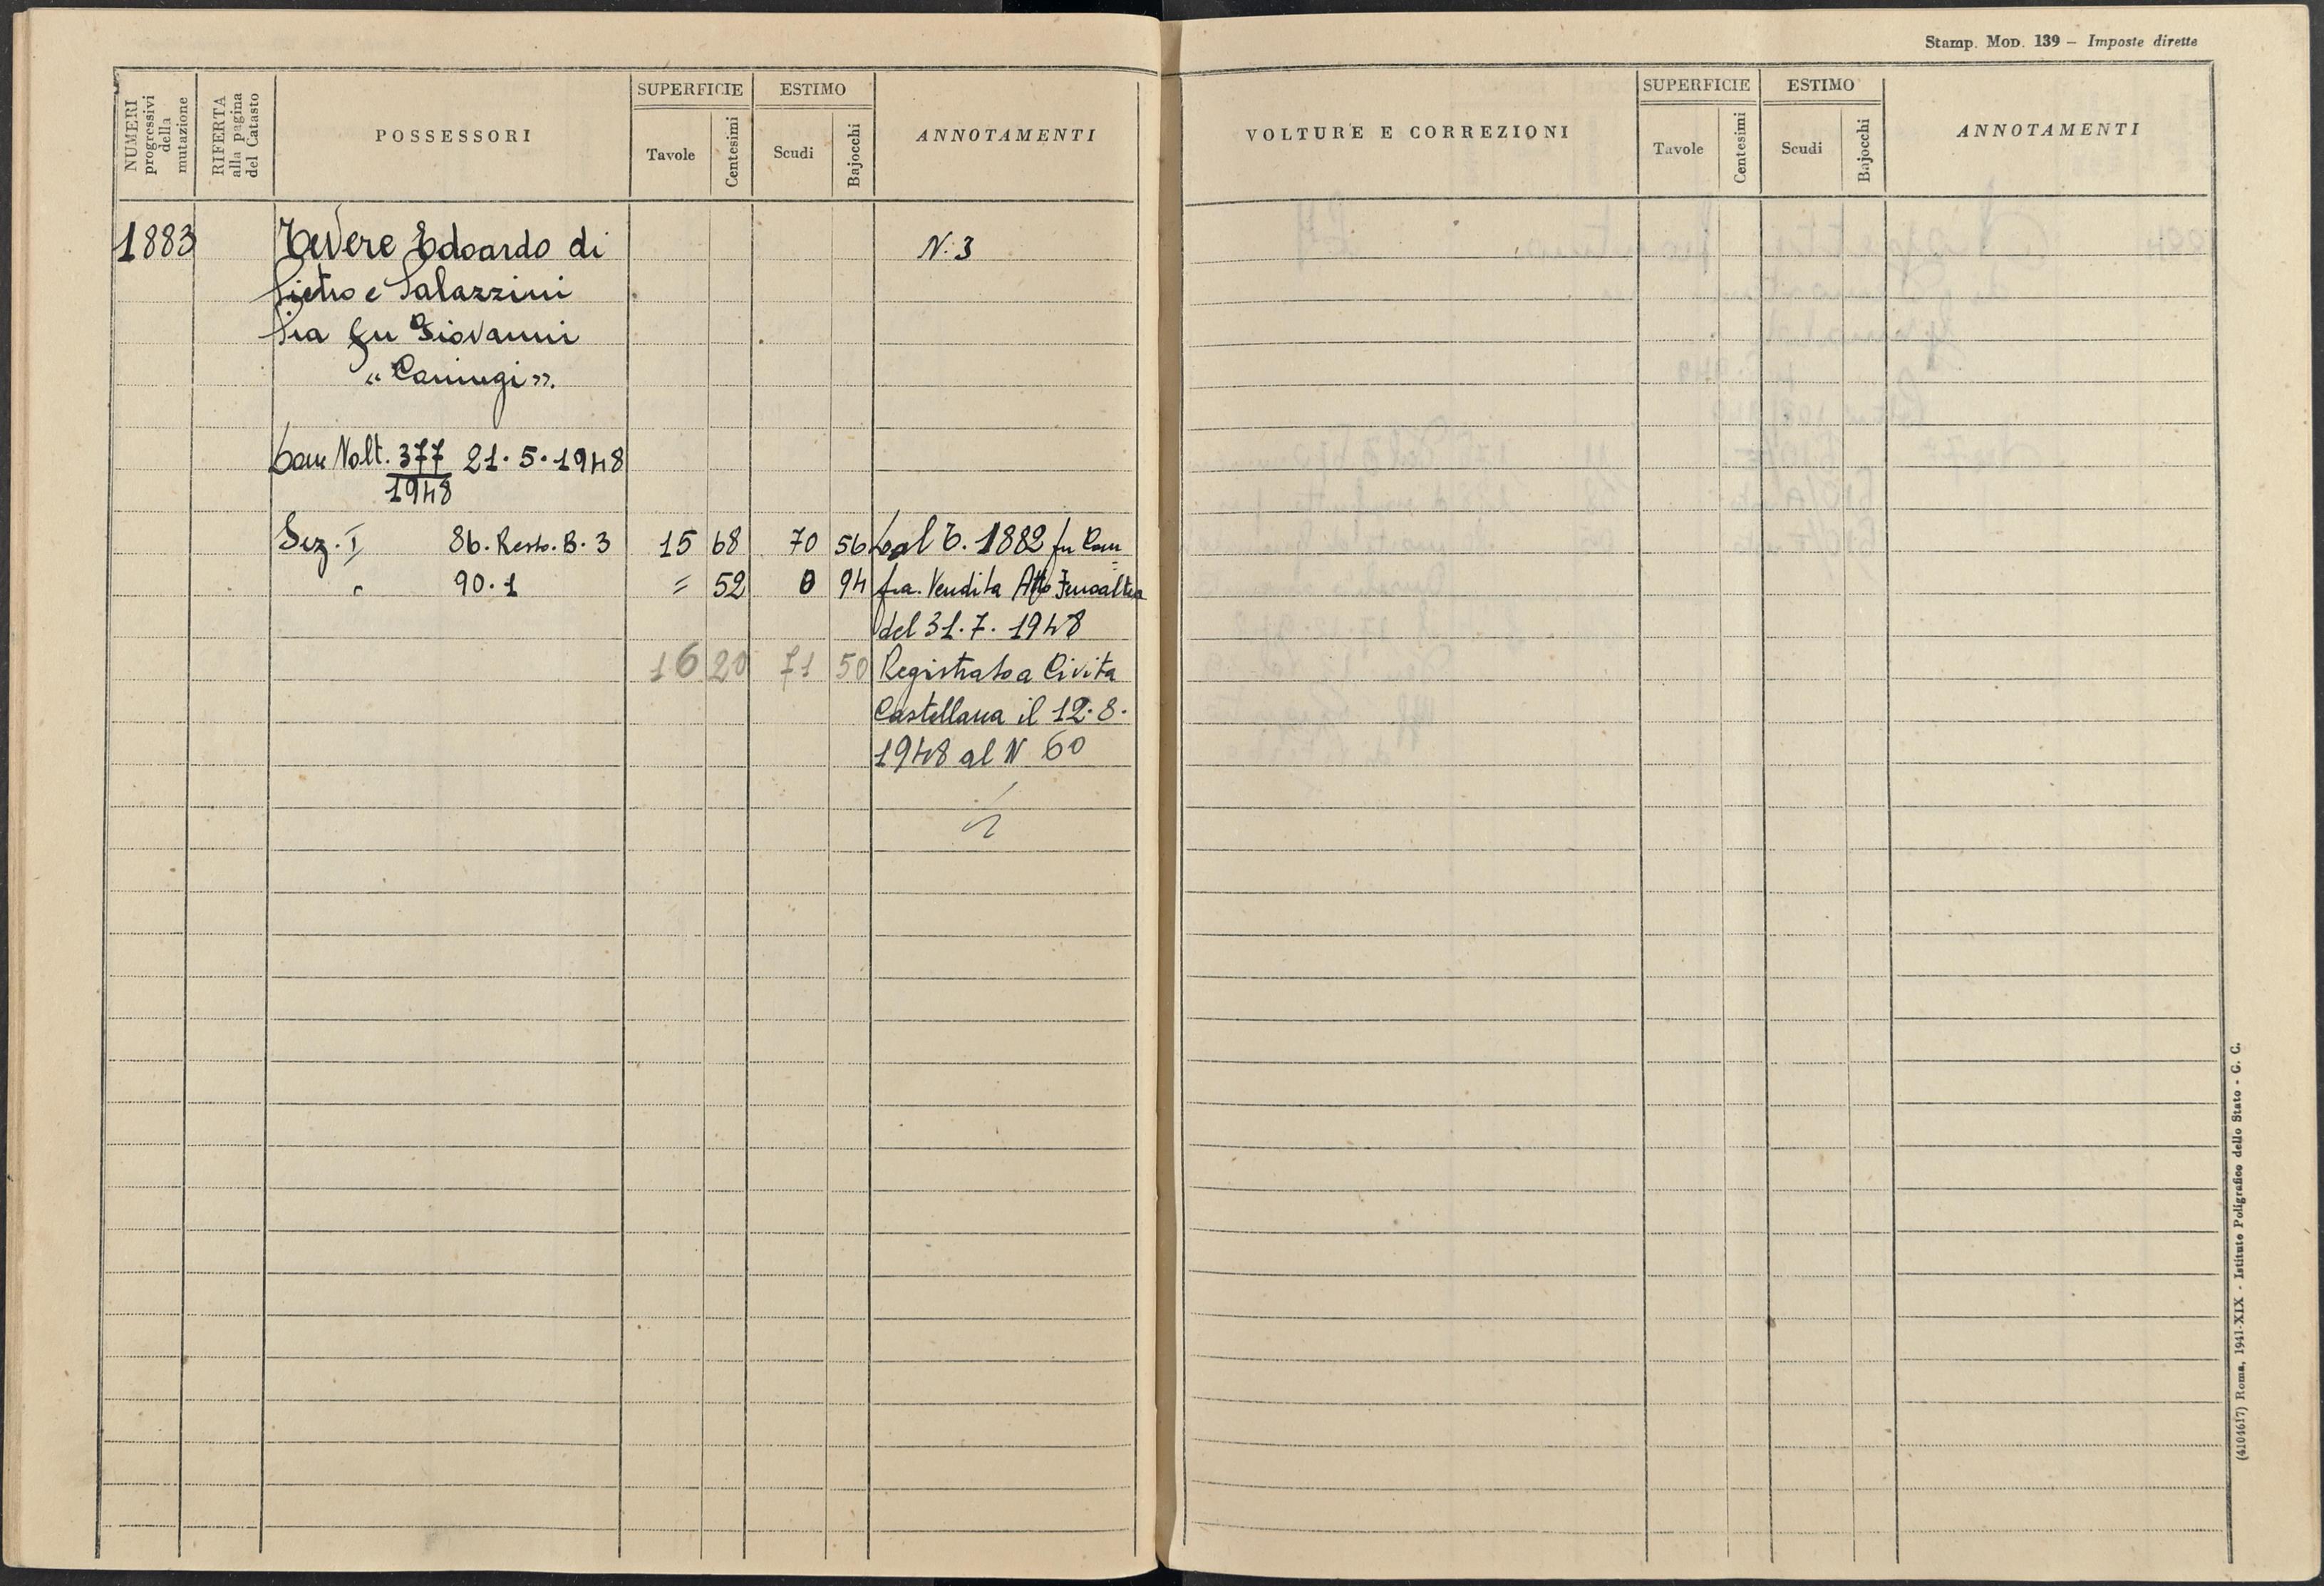 NUMERI progressivi della mutazione
RIFERTA alla pagina del Catasto
POSSESSORI
SUPERFICIE
Tavole
Centesimi
ESTIMO
Scudi
Bajocchi
ANNOTAMENTI
1883
Tevere Edoardo di
N. 3
Pietro e Palazzini
Pia fu Giovanni
"Coniugi".
Con Volt. 377 21·5·1948
1948
Sez. I 86. Resto. B. 3 15 68 70 56 Dal T. 1882 fu Com
" 90. 1 = 52 0 94 fra. Vendita Atto
del 31. 7. 1948
16 20 71 50 Registrato a Civita
Castellana il 12·8·
1948 al N 60
Stamp. Mod. 139 – Imposte dirette
VOLTURE E CORREZIONI
SUPERFICIE
Tavole
Centesimi
ESTIMO
Scudi
Bajocchi
ANNOTAMENTI
(4104617) Roma, 1941-XIX - Istituto Poligrafico dello Stato - G. C.